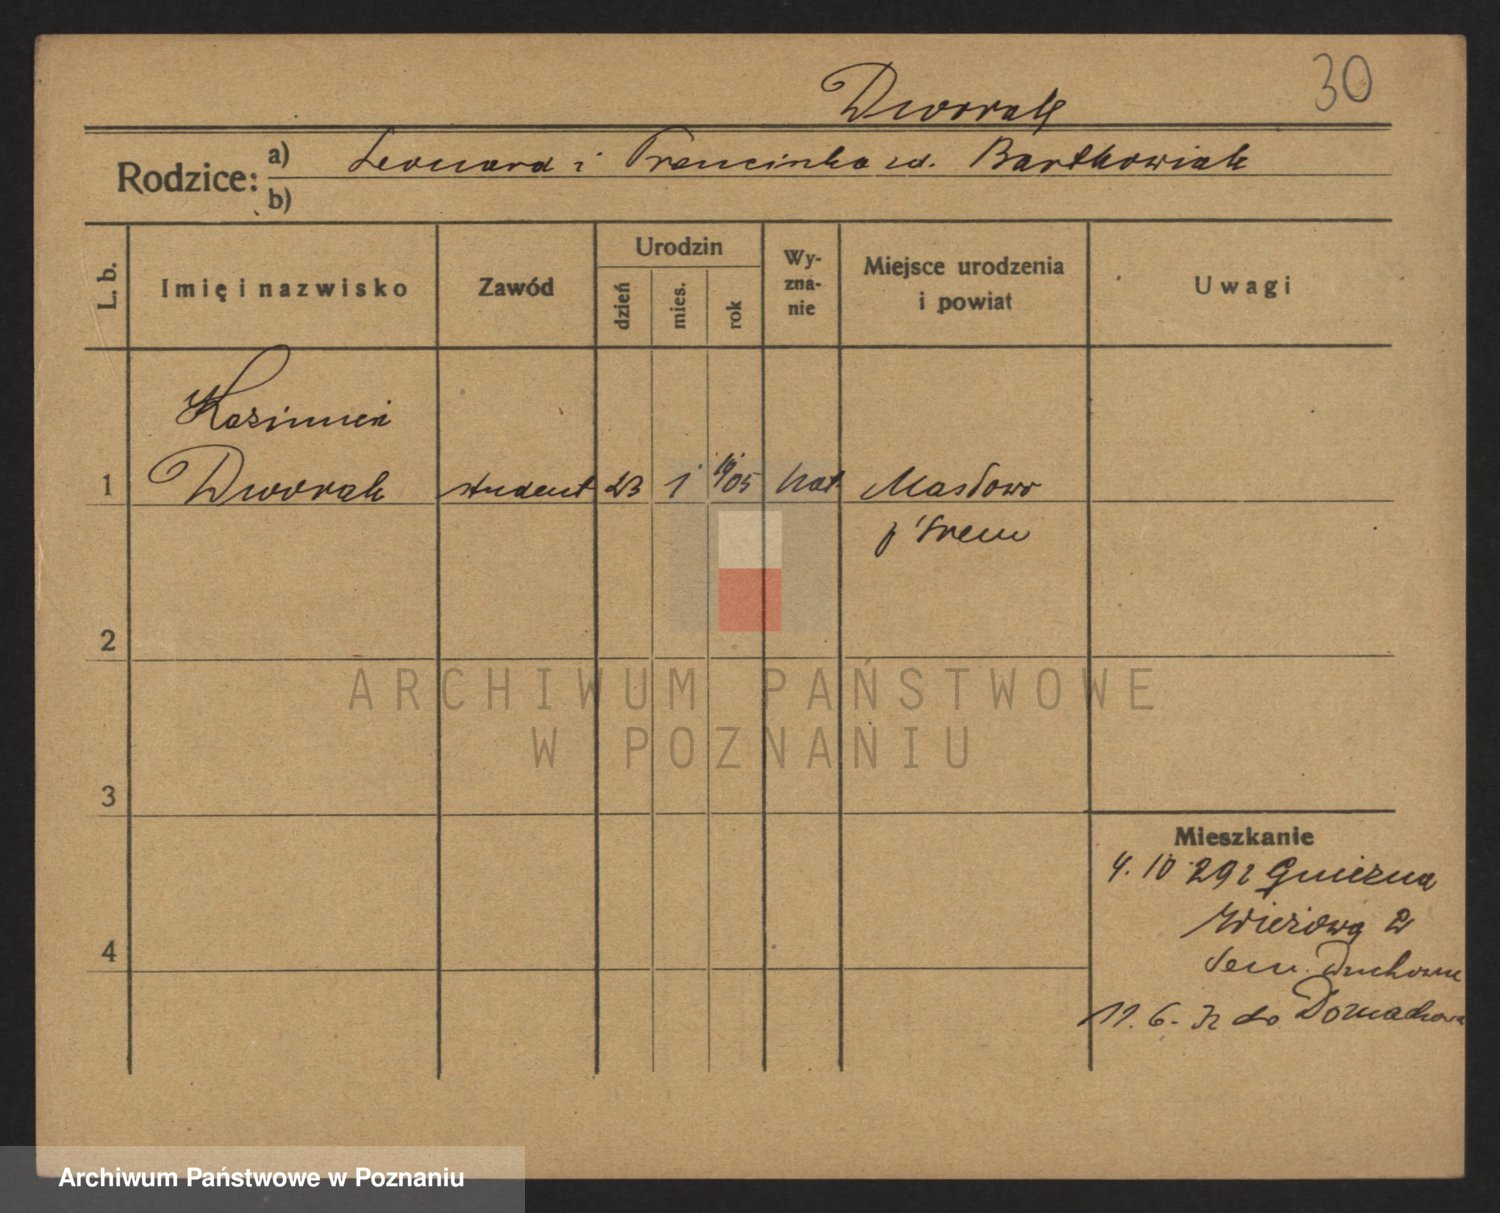 30
Dworak
Rodzice: a) Leonard i Franciszka ur. Bartkowiak
b)
L. b.
Imię i nazwisko
Zawód
Urodzin
dzień
mies.
rok
Wy-
zna-
nie
Miejsce urodzenia
i powiat
Uwagi
Kazimierz
1 Dworak student 23 1 1905 kat. Masłowo
p Śrem
2
3
4
Mieszkanie
4. 10 29 z Gniezna
Wieżowa 2
Sem. Duchowne
11. 6. 32 do Domachowa
ARCHIWUM PAŃSTWOWE
W POZNANIU
Archiwum Państwowe w Poznaniu